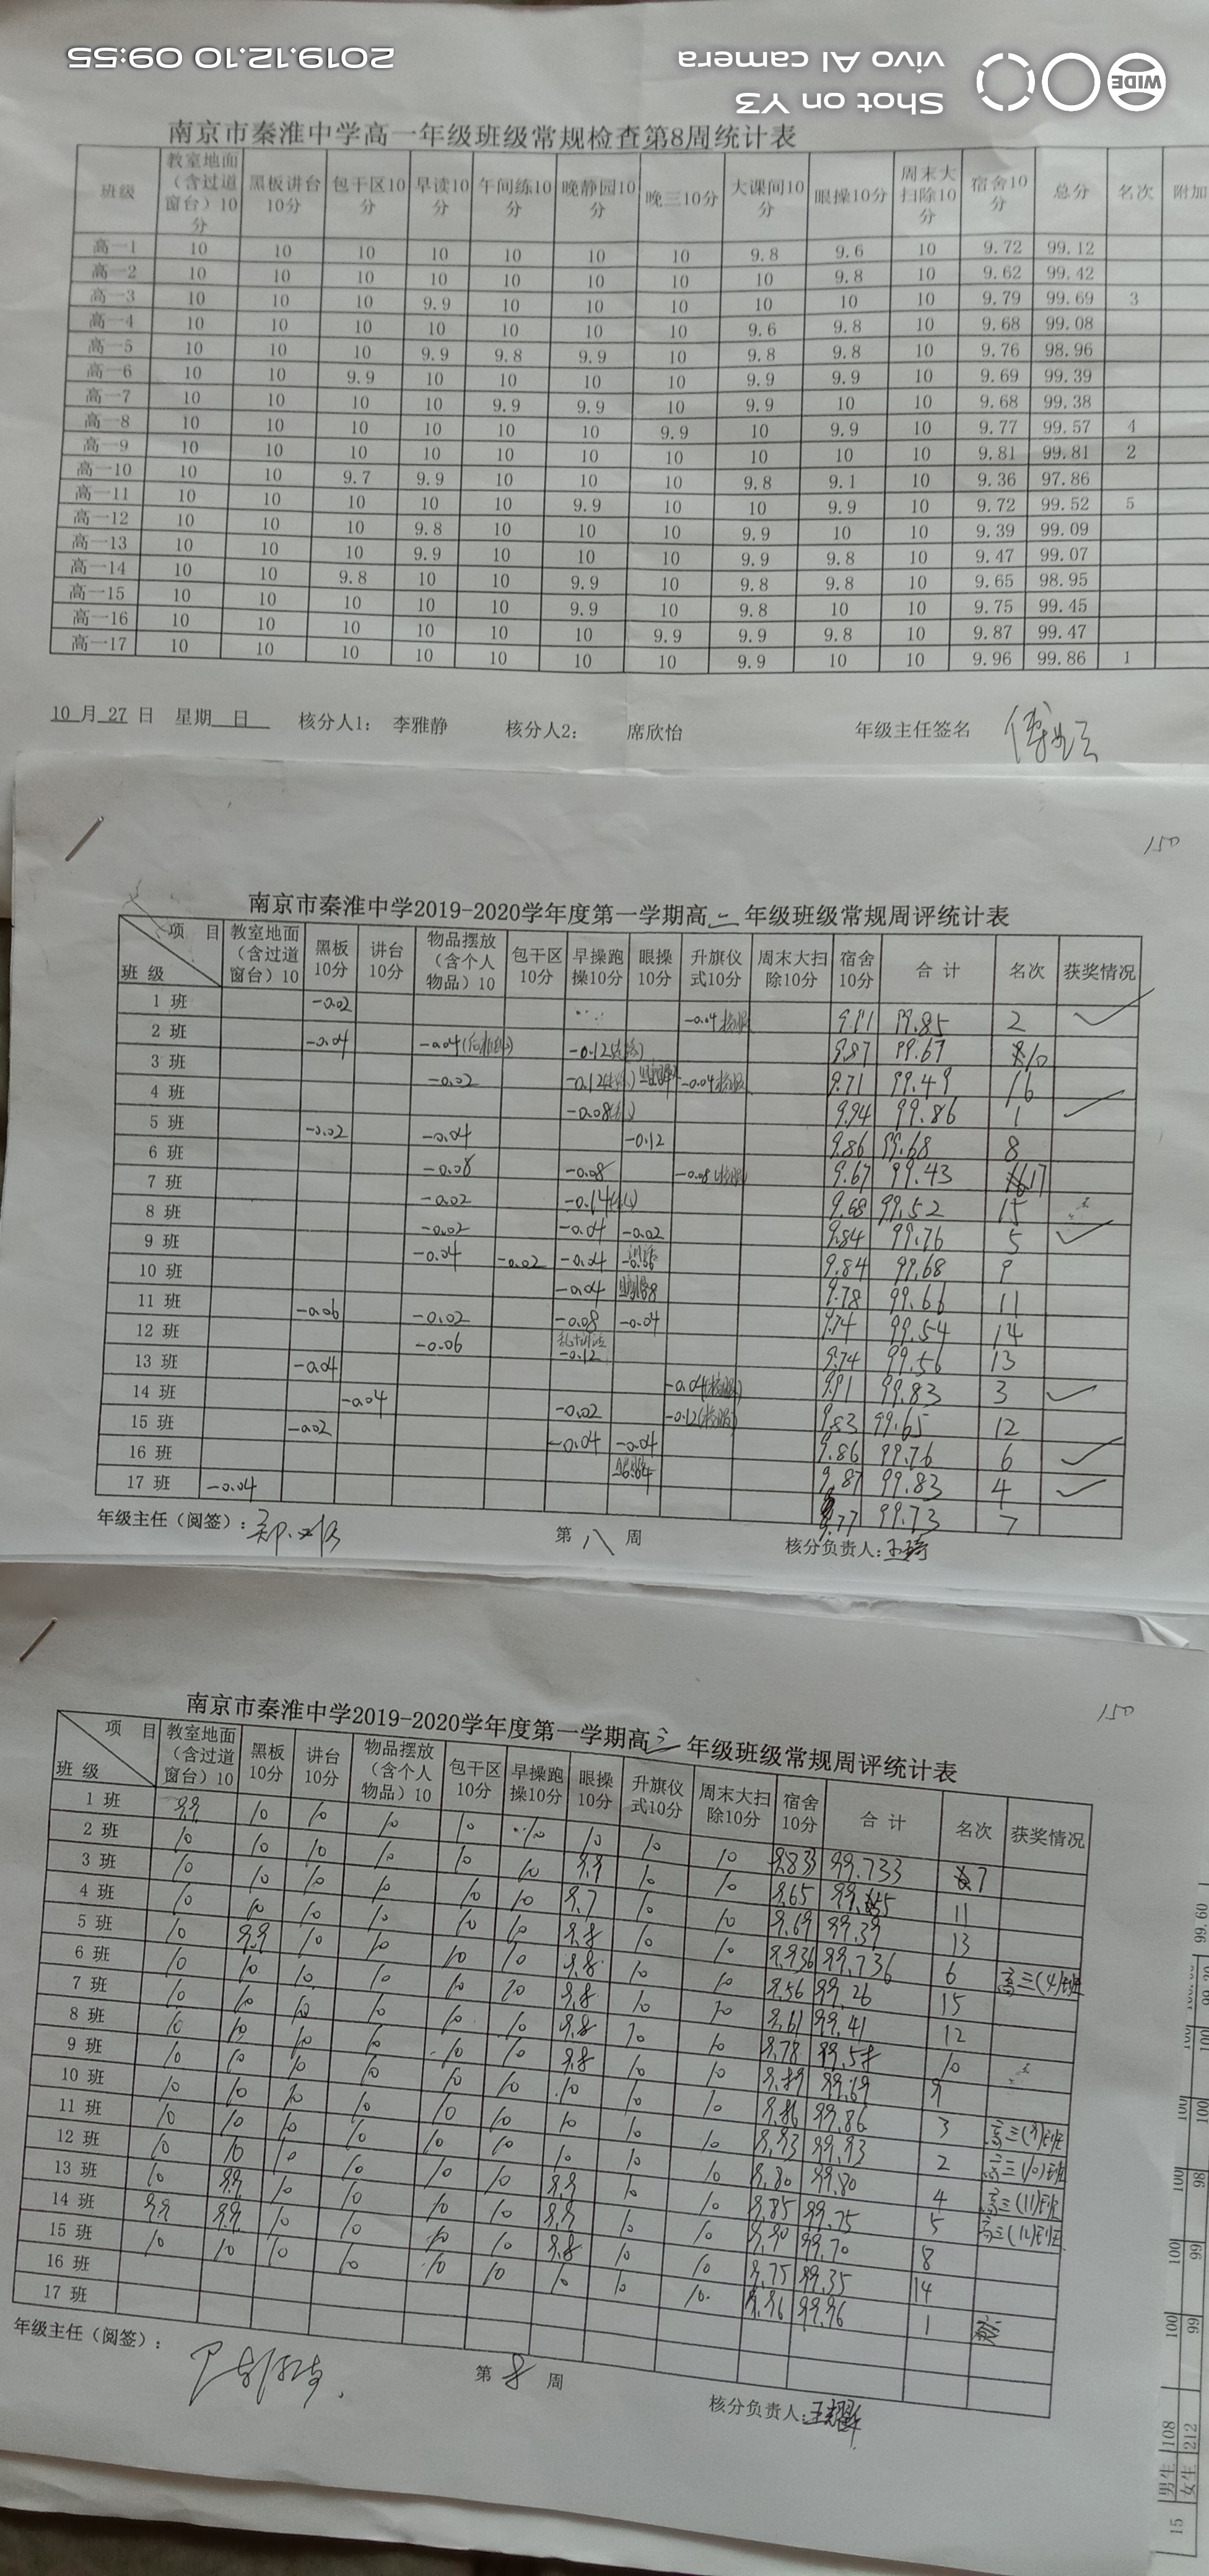 WIDE
Shot on Y3
vivo AI camera
2019.12.10 09:55
南京市秦淮中学高一年级班级常规检查第8周统计表
班级 教室地面（含过道窗台）10分 黑板讲台10分 包干区10分 早读10分 午间练10分 晚静园10分 晚三10分 大课间10分 眼操10分 周末大扫除10分 宿舍10分 总分 名次 附加
高一1 10 10 10 10 10 10 10 9.8 9.6 10 9.72 99.12
高一2 10 10 10 10 10 10 10 10 9.8 10 9.62 99.42
高一3 10 10 10 9.9 10 10 10 10 10 10 9.79 99.69 3
高一4 10 10 10 10 10 10 10 9.6 9.8 10 9.68 99.08
高一5 10 10 10 9.9 9.8 9.9 10 9.8 9.8 10 9.76 98.96
高一6 10 10 9.9 10 10 10 10 9.9 9.9 10 9.69 99.39
高一7 10 10 10 10 9.9 9.9 10 9.9 10 10 9.68 99.38
高一8 10 10 10 10 10 10 9.9 10 9.9 10 9.77 99.57 4
高一9 10 10 10 10 10 10 10 10 10 10 9.81 99.81 2
高一10 10 10 9.7 9.9 10 10 10 9.8 9.1 10 9.36 97.86
高一11 10 10 10 10 10 9.9 10 10 9.9 10 9.72 99.52 5
高一12 10 10 10 9.8 10 10 10 9.9 10 10 9.39 99.09
高一13 10 10 10 9.9 10 10 10 9.9 9.8 10 9.47 99.07
高一14 10 10 9.8 10 10 9.9 10 9.8 9.8 10 9.65 98.95
高一15 10 10 10 10 10 9.9 10 9.8 10 10 9.75 99.45
高一16 10 10 10 10 10 10 9.9 9.9 9.8 10 9.87 99.47
高一17 10 10 10 10 10 10 10 9.9 10 10 9.96 99.86 1
10月27日 星期 日 核分人1： 李雅静 核分人2： 席欣怡 年级主任签名
150
南京市秦淮中学2019-2020学年度第一学期高二年级班级常规周评统计表
项目 班级 教室地面（含过道窗台）10 黑板10分 讲台10分 物品摆放（含个人物品）10 包干区10分 早操跑操10分 眼操10分 升旗仪式10分 周末大扫除10分 宿舍10分 合计 名次 获奖情况
1班 -0.02 -0.04校服 9.91 99.85 2 ✓
2班 -0.04 -0.04 -0.12 9.87 99.67 10
3班 -0.02 -0.12 -0.04校服 9.71 99.49 16
4班 -0.08 9.94 99.86 1 ✓
5班 -0.02 -0.04 -0.12 9.86 99.68 8
6班 -0.08 -0.08 -0.08校服 9.67 99.43 17
7班 -0.02 -0.14 9.68 99.52 15
8班 -0.02 -0.04 -0.02 9.84 99.76 5 ✓
9班 -0.04 -0.02 -0.04 9.84 99.68 9
10班 -0.04 9.78 99.66 11
11班 -0.06 -0.02 -0.08 -0.04 9.74 99.54 14
12班 -0.06 -0.12 9.74 99.56 13
13班 -0.04 -0.04(校服) 9.91 99.83 3 ✓
14班 -0.04 -0.02 -0.12(校服) 9.83 99.65 12
15班 -0.02 -0.04 -0.04 9.86 99.76 6 ✓
16班 9.87 99.83 4 ✓
17班 -0.04 9.77 99.73 7
年级主任（阅签）： 第八周 核分负责人：王琦
150
南京市秦淮中学2019-2020学年度第一学期高三年级班级常规周评统计表
项目 班级 教室地面（含过道窗台）10 黑板10分 讲台10分 物品摆放（含个人物品）10 包干区10分 早操跑操10分 眼操10分 升旗仪式10分 周末大扫除10分 宿舍10分 合计 名次 获奖情况
1班 9.9 10 10 10 10 10 10 10 10 9.833 99.733 7
2班 10 10 10 10 10 10 9.9 10 10 9.65 11
3班 10 10 10 10 10 10 9.7 10 10 9.69 99.39 13
4班 10 10 10 10 10 10 9.8 10 10 9.936 99.736 6 高三(4)班
5班 10 9.9 10 10 10 10 9.8 10 10 9.56 99.26 15
6班 10 10 10 10 10 10 9.8 10 10 9.61 99.41 12
7班 10 10 10 10 10 10 9.8 10 10 9.78 99.58 10
8班 10 10 10 10 10 10 9.8 10 10 9.89 99.69 9
9班 10 10 10 10 10 10 10 10 10 9.86 99.86 3 高三(9)班
10班 10 10 10 10 10 10 10 10 10 9.93 99.93 2 高三(10)班
11班 10 10 10 10 10 10 10 10 10 9.80 99.80 4 高三(11)班
12班 10 10 10 10 10 10 9.9 10 10 9.85 99.75 5 高三(12)班
13班 10 9.9 10 10 10 10 9.9 10 10 9.90 99.70 8
14班 9.9 9.9 10 10 10 10 9.8 10 10 9.75 99.35 14
15班 10 10 10 10 10 10 10 10 10 9.96 99.96 1
16班
17班
年级主任（阅签）： 第8周 核分负责人：
15 男生 108 100 99
女生 212
99.60